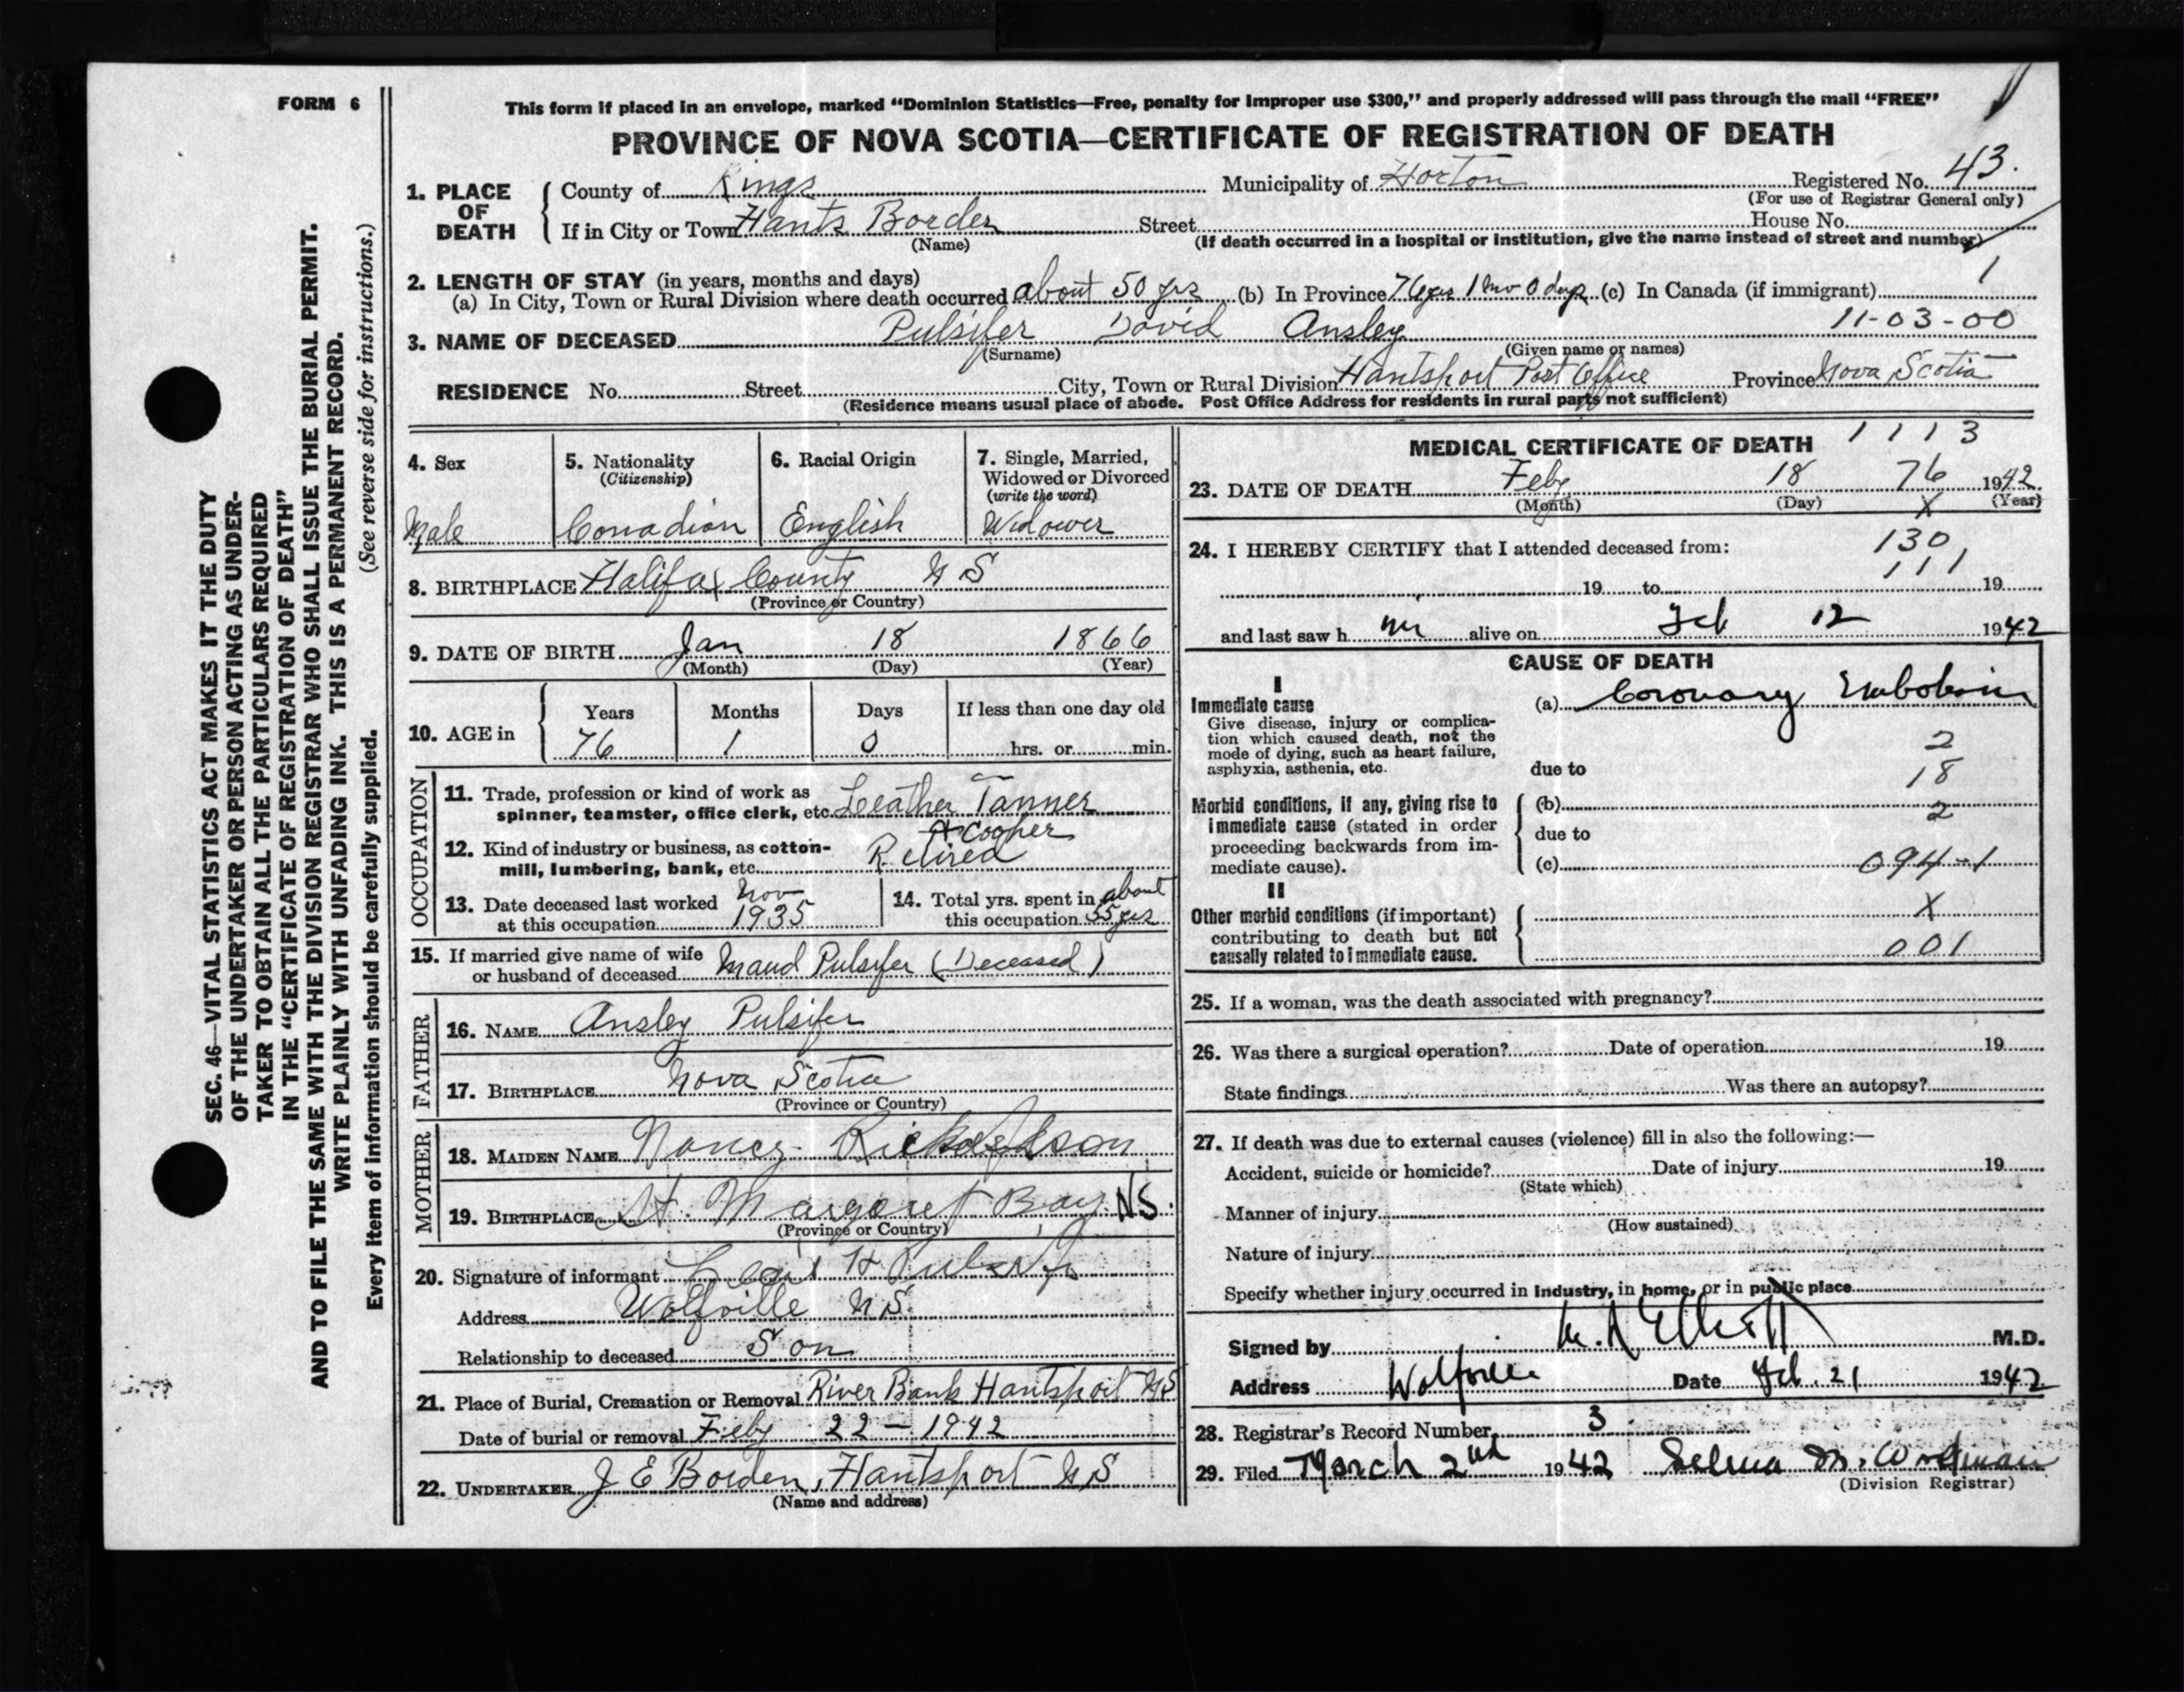 FORM 6
This form if placed in an envelope, marked “Dominion Statistics—Free, penalty for improper use $300,” and properly addressed will pass through the mail “FREE”
PROVINCE OF NOVA SCOTIA—CERTIFICATE OF REGISTRATION OF DEATH
SEC. 46—VITAL STATISTICS ACT MAKES IT THE DUTY
OF THE UNDERTAKER OR PERSON ACTING AS UNDER-
TAKER TO OBTAIN ALL THE PARTICULARS REQUIRED
IN THE “CERTIFICATE OF REGISTRATION OF DEATH”
AND TO FILE THE SAME WITH THE DIVISION REGISTRAR WHO SHALL ISSUE THE BURIAL PERMIT.
WRITE PLAINLY WITH UNFADING INK. THIS IS A PERMANENT RECORD.
(See reverse side for instructions.)
Every item of information should be carefully supplied.
1. PLACE OF DEATH
County of Kings Municipality of Horton Registered No. 43.
(For use of Registrar General only)
If in City or Town Hants Border Street House No.
(Name) (If death occurred in a hospital or institution, give the name instead of street and number)
2. LENGTH OF STAY (in years, months and days) 1
(a) In City, Town or Rural Division where death occurred about 50 yrs (b) In Province 76 yrs 1 mo 0 days (c) In Canada (if immigrant)
3. NAME OF DECEASED Pulsifer David Ansley 11-03-00
(Surname) (Given name or names)
RESIDENCE No. Street City, Town or Rural Division Hantsport Post Office Province Nova Scotia
(Residence means usual place of abode. Post Office Address for residents in rural parts not sufficient)
4. Sex
Male
5. Nationality
(Citizenship)
Canadian
6. Racial Origin
English
7. Single, Married,
Widowed or Divorced
(write the word)
Widower
8. BIRTHPLACE Halifax County N S
(Province or Country)
9. DATE OF BIRTH Jan 18 1866
(Month) (Day) (Year)
10. AGE in
Years Months Days If less than one day old
76 1 0 hrs. or min.
OCCUPATION
11. Trade, profession or kind of work as
spinner, teamster, office clerk, etc. Leather Tanner
& Cooper
12. Kind of industry or business, as cotton-
mill, lumbering, bank, etc. Retired
13. Date deceased last worked
at this occupation Nov 1935
14. Total yrs. spent in
this occupation about 55 yrs
15. If married give name of wife
or husband of deceased Maud Pulsifer (Deceased)
FATHER
16. NAME Ansley Pulsifer
17. BIRTHPLACE Nova Scotia
(Province or Country)
MOTHER
18. MAIDEN NAME Nancy Richardson
19. BIRTHPLACE St. Margaret Bay NS.
(Province or Country)
20. Signature of informant H Pulsifer
Address Wolfville N S.
Relationship to deceased Son
21. Place of Burial, Cremation or Removal River Bank Hantsport NS
Date of burial or removal Feby 22 – 1942
22. UNDERTAKER J E Borden, Hantsport N S
(Name and address)
MEDICAL CERTIFICATE OF DEATH 1113
23. DATE OF DEATH Feby 18 76 1942
(Month) (Day) X (Year)
24. I HEREBY CERTIFY that I attended deceased from: 130
111
19 to 19
and last saw h im alive on Feb 12 1942
CAUSE OF DEATH
I
Immediate cause
Give disease, injury or complica-
tion which caused death, not the
mode of dying, such as heart failure,
asphyxia, asthenia, etc.
(a) Coronary Embolism
2
due to 18
Morbid conditions, if any, giving rise to
immediate cause (stated in order
proceeding backwards from im-
mediate cause).
(b) 2
due to
(c) 094-1
II
Other morbid conditions (if important)
contributing to death but not
causally related to immediate cause.
X
001
25. If a woman, was the death associated with pregnancy?
26. Was there a surgical operation? Date of operation 19
State findings Was there an autopsy?
27. If death was due to external causes (violence) fill in also the following:—
Accident, suicide or homicide? Date of injury 19
(State which)
Manner of injury
(How sustained)
Nature of injury
Specify whether injury occurred in industry, in home, or in public place
Signed by Elliott M.D.
Address Wolfville Date Feb. 21 1942
28. Registrar's Record Number 3
29. Filed March 2nd 1942 Selma M. Woodman
(Division Registrar)